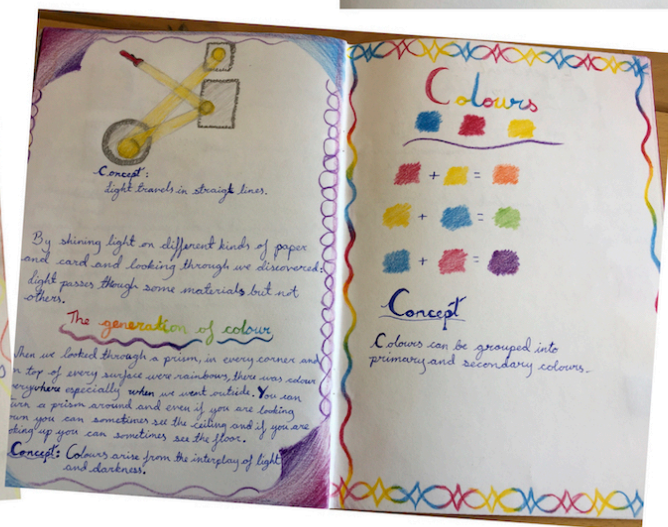 Concept:
Light travels in straigt lines.
By shining light on different kinds of paper
and card and looking through we discovered:
Light passes though some materials but not
others.
The generation of colour
When we looked through a prism, in every corner and
on top of every surface were rainbows, there was colour
everywhere especially when we went outside. You can
turn a prism around and even if you are looking
down you can sometimes see the ceiling and if you are
looking up you can sometimes see the floor.
Concept: Colours arise from the interplay of light
and darkness.
Colours
+ =
+ =
+ =
Concept
Colours can be grouped into
primary and secondary colours.